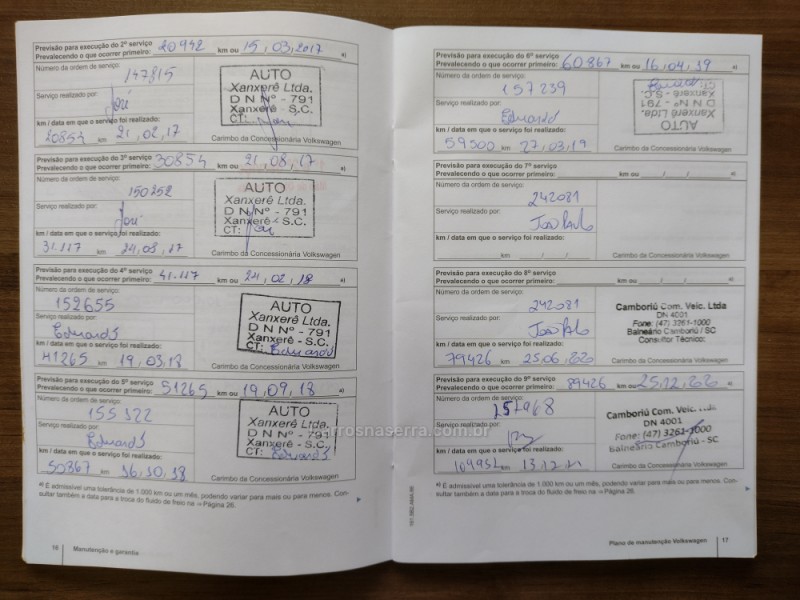 Previsão para execução do 2º serviço
Prevalecendo o que ocorrer primeiro: 20942 km ou 15,03,2017 a)
Número da ordem de serviço:
147815
Serviço realizado por:
José
km / data em que o serviço foi realizado:
20854 km 21,02,17
AUTO
Xanxerê Ltda.
D N Nº - 791
Xanxerê - S.C.
CT:
Carimbo da Concessionária Volkswagen
Previsão para execução do 3º serviço
Prevalecendo o que ocorrer primeiro: 30854 km ou 21,08,17 a)
Número da ordem de serviço:
150252
Serviço realizado por:
José
km / data em que o serviço foi realizado:
31.117 km 24,08,17
AUTO
Xanxerê Ltda.
D N Nº - 791
Xanxerê - S.C.
CT:
Carimbo da Concessionária Volkswagen
Previsão para execução do 4º serviço
Prevalecendo o que ocorrer primeiro: 41.117 km ou 24,02,18 a)
Número da ordem de serviço:
152655
Serviço realizado por:
Eduardo
km / data em que o serviço foi realizado:
41265 km 19,03,18
AUTO
Xanxerê Ltda.
D N Nº - 791
Xanxerê - S.C.
CT: Eduardo
Carimbo da Concessionária Volkswagen
Previsão para execução do 5º serviço
Prevalecendo o que ocorrer primeiro: 51265 km ou 19,09,18 a)
Número da ordem de serviço:
155322
Serviço realizado por:
Eduardo
km / data em que o serviço foi realizado:
50867 km 16,10,18
AUTO
Xanxerê Ltda.
D N Nº - 791
Xanxerê - S.C.
CT: Eduardo
Carimbo da Concessionária Volkswagen
a) É admissível uma tolerância de 1.000 km ou um mês, podendo variar para mais ou para menos. Con-
sultar também a data para a troca do fluido de freio na ⇒ Página 26.
16 Manutenção e garantia
Previsão para execução do 6º serviço
Prevalecendo o que ocorrer primeiro: 60867 km ou 16,04,19 a)
Número da ordem de serviço:
157239
Serviço realizado por:
Eduardo
km / data em que o serviço foi realizado:
59300 km 27,03,19
AUTO
Xanxerê Ltda.
D N Nº - 791
Xanxerê - S.C.
CT: Eduardo
Carimbo da Concessionária Volkswagen
Previsão para execução do 7º serviço
Prevalecendo o que ocorrer primeiro: km ou / / a)
Número da ordem de serviço:
242081
Serviço realizado por:
João Paulo
km / data em que o serviço foi realizado:
km / /
Carimbo da Concessionária Volkswagen
Previsão para execução do 8º serviço
Prevalecendo o que ocorrer primeiro: km ou / / a)
Número da ordem de serviço:
242081
Serviço realizado por:
João Paulo
km / data em que o serviço foi realizado:
79426 km 25,06,2020
Camboriú Com. Veic. Ltda
DN 4001
Fone: (47) 3261-1000
Balneário Camboriú / SC
Consultor Técnico:
Carimbo da Concessionária Volkswagen
Previsão para execução do 9º serviço
Prevalecendo o que ocorrer primeiro: 89426 km ou 25,12,2020 a)
Número da ordem de serviço:
Serviço realizado por:
km / data em que o serviço foi realizado:
km 13,12,21
Camboriú Com. Veic. Ltda
DN 4001
Fone: (47) 3261-1000
Balneário Camboriú - SC
Carimbo da Concessionária Volkswagen
a) É admissível uma tolerância de 1.000 km ou um mês, podendo variar para mais ou para menos. Con-
sultar também a data para a troca do fluido de freio na ⇒ Página 26.
Plano de manutenção Volkswagen 17
rrosnaserra.com.br